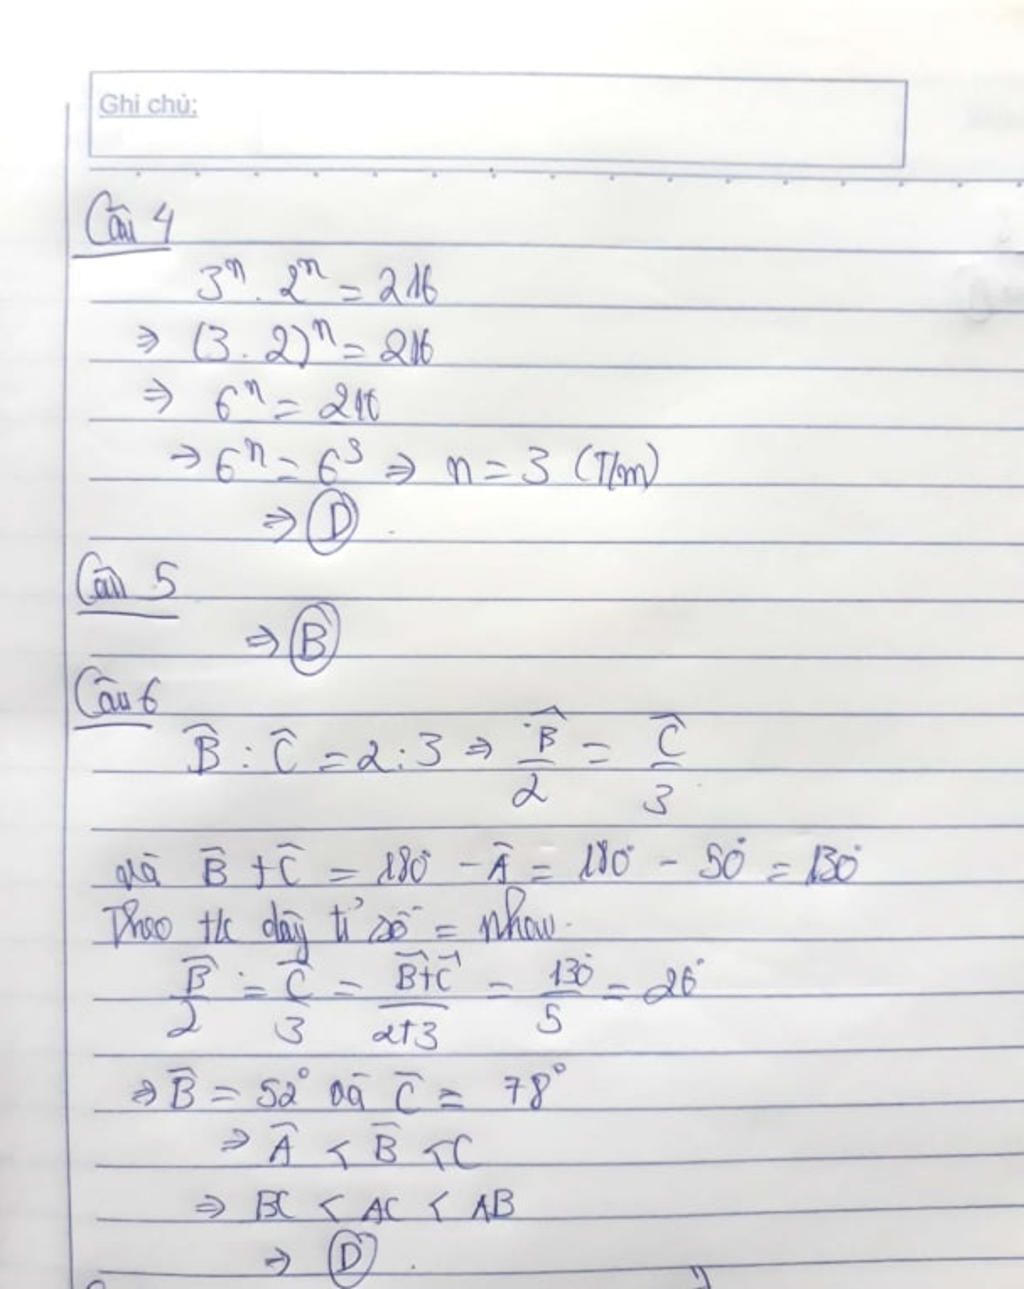 Ghi chú:
Câu 4
3ⁿ . 2ⁿ = 216
⇒ (3 . 2)ⁿ = 216
⇒ 6ⁿ = 216
⇒ 6ⁿ = 6³ ⇒ n = 3 (T/m)
⇒ D .
Câu 5
⇒ B
Câu 6
B̂ : Ĉ = 2 : 3 ⇒ B̂/2 = Ĉ/3
và B̂ + Ĉ = 180° - Â = 180° - 50° = 130°
Theo t/c dãy tỉ số = nhau.
B̂/2 = Ĉ/3 = (B̂+Ĉ)/(2+3) = 130°/5 = 26°
⇒ B̂ = 52° và Ĉ = 78°
⇒ Â < B̂ < C
⇒ BC < AC < AB
⇒ D .